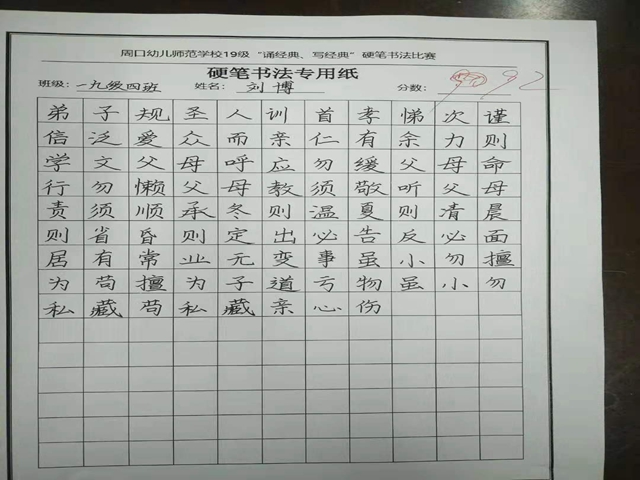 周口幼儿师范学校19级“诵经典、写经典”硬笔书法比赛
硬笔书法专用纸
班级：一九级四班 姓名：刘博 分数：92
弟子规圣人训首孝悌次谨
信泛爱众而亲仁有余力则
学文父母呼应勿缓父母命
行勿懒父母教须敬听父母
责须顺承冬则温夏则清晨
则省昏则定出必告反必面
居有常业无变事虽小勿擅
为苟擅为子道亏物虽小勿
私藏苟私藏亲心伤